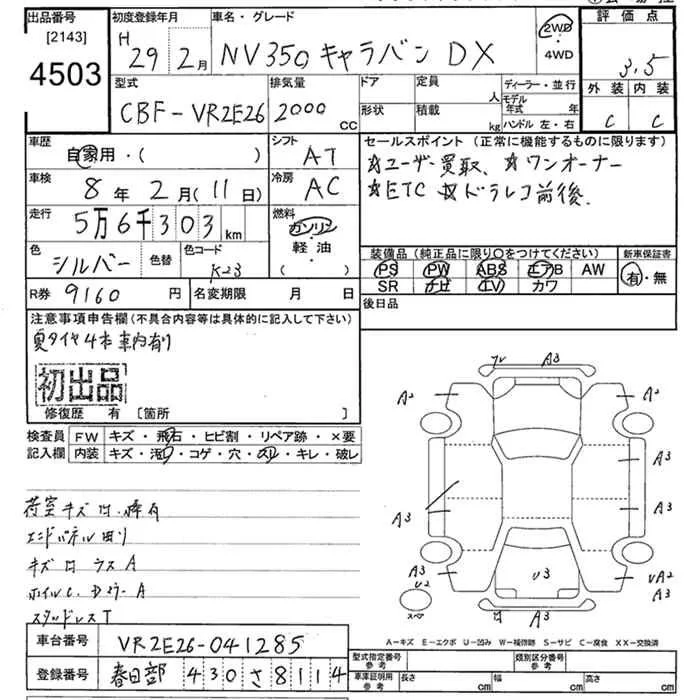 出品番号 初度登録年月 車名・グレード 2WD 評価点
[2143] H
4503 29年 2月 NV350キャラバン DX 4WD 3.5
型式 排気量 ドア 定員 ディーラー・並行 外装 内装
CBF-VR2E26 2000cc 形状 積載 人 モデル年式 年 C C
kg ハンドル 左・右
車歴 シフト セールスポイント (正常に機能するものに限ります)
自家用・( ) AT ☆ユーザー買取、☆ワンオーナー
車検 冷房 ☆ETC ☆ドラレコ前後、
8年 2月(11日) AC
走行 燃料
5万6千303km ガソリン
色 色替 色コード 軽油 装備品 (純正品に限り○をつけてください) 新車保証書
シルバー K23 ( ) PS PW ABS エアB AW 有・無
R券 9160円 名変期限 月 日 SR ナビ TV カワ
後日品
注意事項申告欄(不具合内容等は具体的に記入して下さい)
夏タイヤ4本車内有り
初出品
修復歴 有 [箇所 ]
検査員 FW キズ・飛石・ヒビ割・リペア跡・×要
記入欄 内装 キズ・汚・コゲ・穴・スレ・キレ・破レ
A3
A2 A2
A3
A3 A3
A3 U3 UA2
U2 A3
スペア A3
荷室キズ
エンドパネル
キズ ウスA
ホイルC.
スタッドレスT
A-キズ E-エクボ U-凹み W-補修跡 S-サビ C-腐食 XX-交換済
車台番号 VR2E26-041285 型式指定番号 参考 類別区分番号 参考
登録番号 春日部 430 さ 8114 車庫証明用 参考 長さ cm 幅 cm 高さ cm